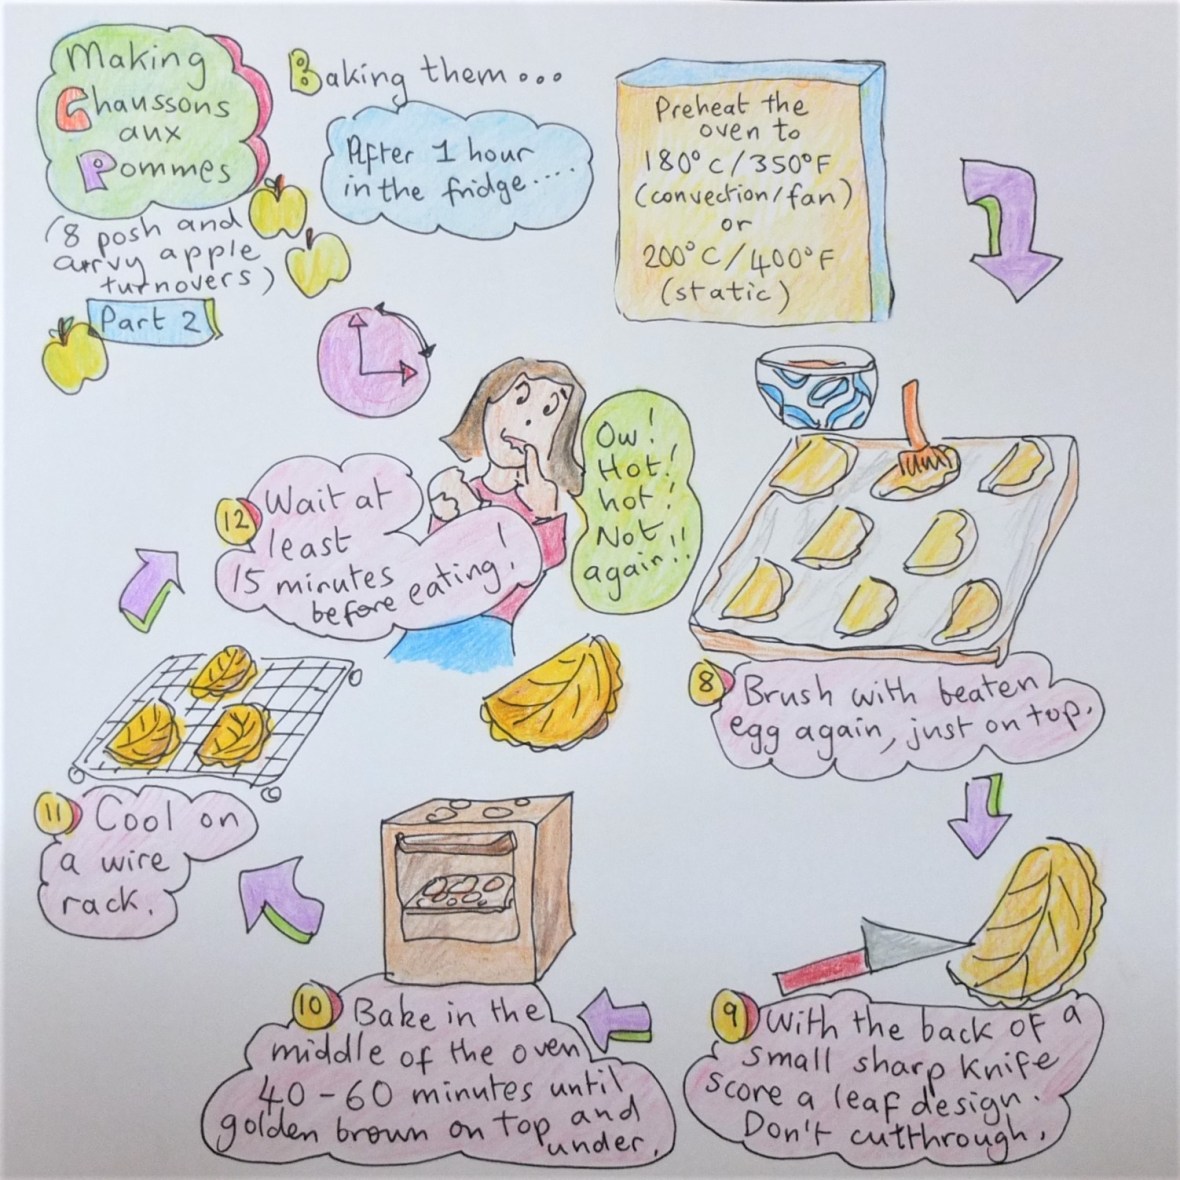 Making
Chaussons
aux
Pommes
(8 posh and
arrvy apple
turnovers)
Part 2
Baking them...
After 1 hour
in the fridge....
Preheat the
oven to
180°C/350°F
(convection/fan)
or
200°C/400°F
(static)
8
Brush with beaten
egg again, just on top.
9
With the back of a
small sharp knife
score a leaf design.
Don't cut through.
10
Bake in the
middle of the oven
40-60 minutes until
golden brown on top and
under.
11
Cool on
a wire
rack.
12
Wait at
least
15 minutes
before eating!
Ow!
Hot!
hot!
Not
again!!